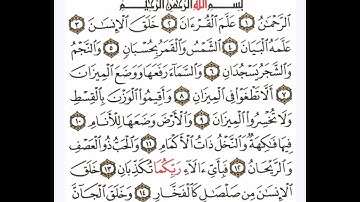 بِسْمِ اللَّهِ الرَّحْمَٰنِ الرَّحِيمِ
الرَّحْمَٰنُ ١ عَلَّمَ الْقُرْءَانَ ٢ خَلَقَ الْإِنسَٰنَ ٣
عَلَّمَهُ الْبَيَانَ ٤ الشَّمْسُ وَالْقَمَرُ بِحُسْبَانٍ ٥ وَالنَّجْمُ
وَالشَّجَرُ يَسْجُدَانِ ٦ وَالسَّمَآءَ رَفَعَهَا وَوَضَعَ الْمِيزَانَ
٧ أَلَّا تَطْغَوْا۟ فِى الْمِيزَانِ ٨ وَأَقِيمُوا۟ الْوَزْنَ بِالْقِسْطِ
وَلَا تُخْسِرُوا۟ الْمِيزَانَ ٩ وَالْأَرْضَ وَضَعَهَا لِلْأَنَامِ ١٠
فِيهَا فَٰكِهَةٌ وَالنَّخْلُ ذَاتُ الْأَكْمَامِ ١١ وَالْحَبُّ ذُو الْعَصْفِ
وَالرَّيْحَانُ ١٢ فَبِأَىِّ ءَالَآءِ رَبِّكُمَا تُكَذِّبَانِ ١٣ خَلَقَ
الْإِنسَٰنَ مِن صَلْصَٰلٍ كَالْفَخَّارِ ١٤ وَخَلَقَ الْجَآنَّ